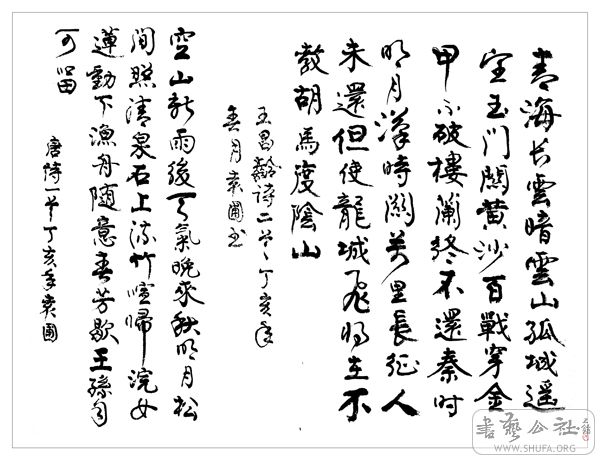 青海长雲暗雲山孤城遥
望玉門關黄沙百戰穿金
甲不破樓蘭終不還秦時
明月漢時關萬里長征人
未還但使龍城飛将在不
教胡馬度陰山
王昌齡詩二首丁亥年
春月袁圃书
空山新雨後天氣晚来秋明月松
間照清泉石上流竹喧歸浣女
蓮動下漁舟随意春芳歇王孫自
可留
唐詩一首丁亥年袁圃
書藝公社
WWW.SHUFA.ORG